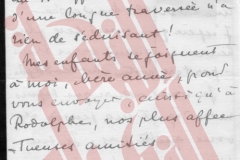 d'une longue traversée n'a
rien de séduisant !
Mes enfants se joignent
à moi, chère amie, pour
vous envoyer, ainsi qu'à
Rodolphe, nos plus affec-
-tueuses amitiés